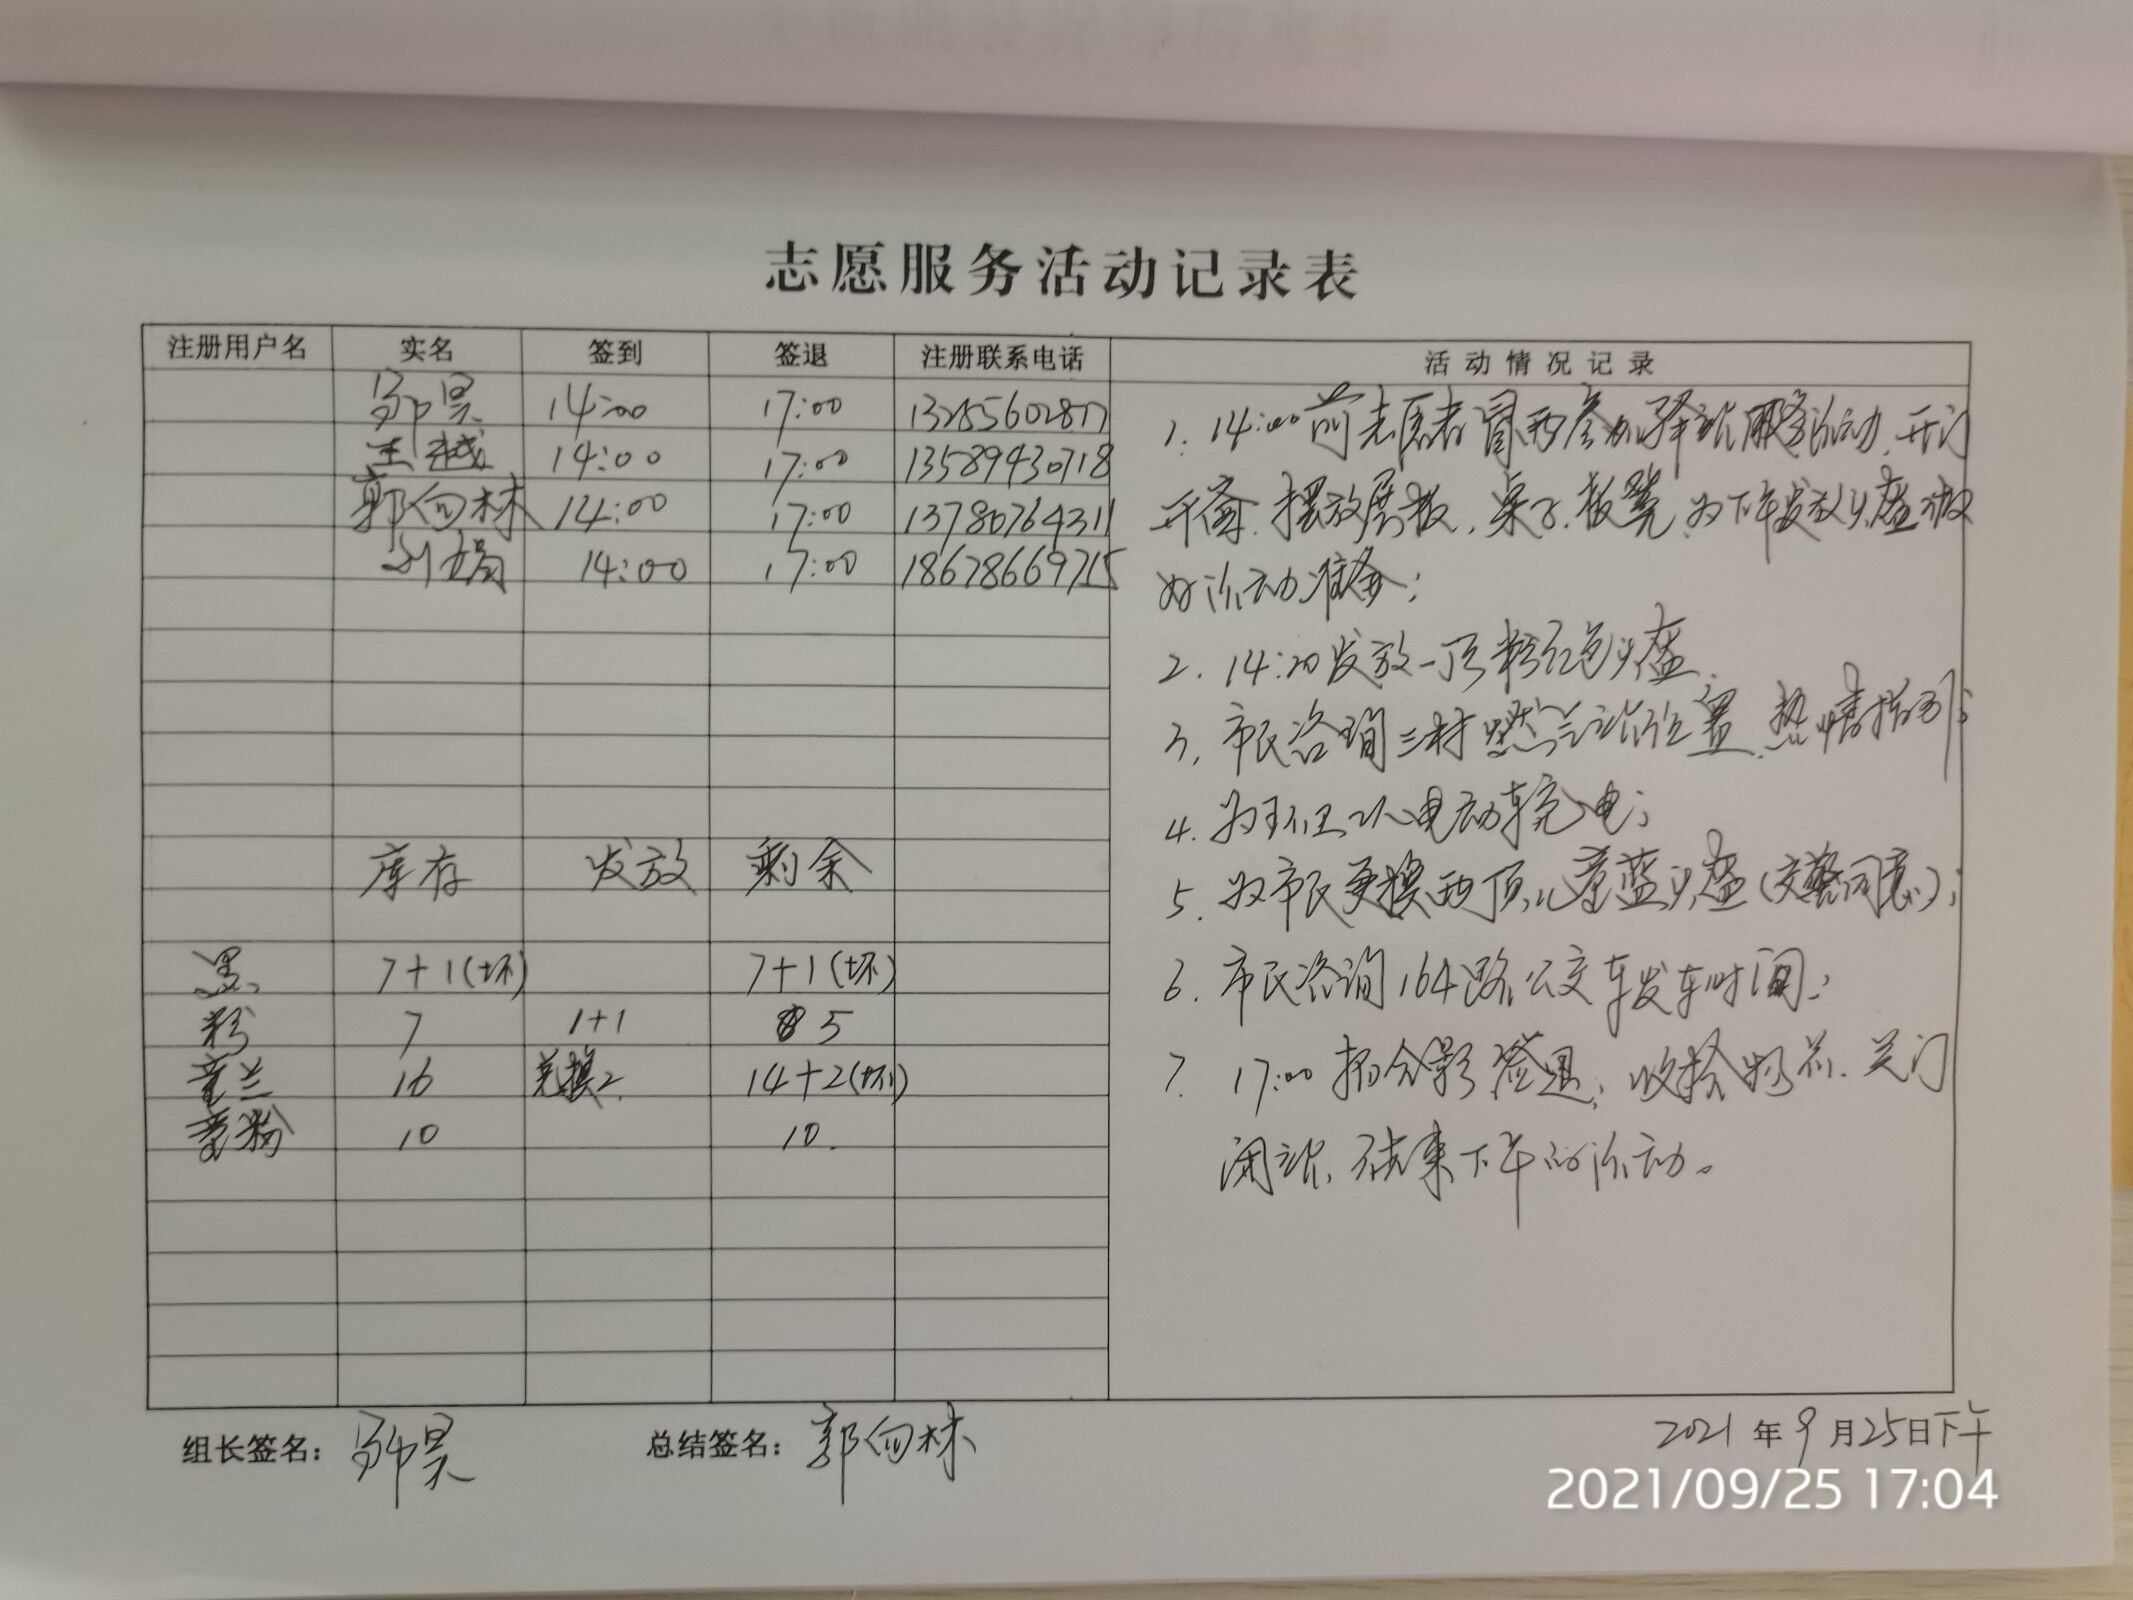 志愿服务活动记录表
注册用户名 实名 签到 签退 注册联系电话 活动情况记录
昊 14:00 17:00
王越 14:00 17:00 13589430718
郭向林 14:00 17:00 13780764311
刘娟 14:00 17:00 18678669715
库存 发放 剩余
黑 7+1(坏) 7+1(坏)
粉 7 1+1 5
童兰 16 兑换2 14+2(坏)
童粉 10 10.
1. 14:00前志愿者冒雨参加驿站服务活动,开门
开窗,摆放展板,桌子,板凳,为下午发放头盔做
好活动准备;
2. 14:20发放一顶粉红色头盔.
3. 市民咨询三村燃气站位置,热情指引;
4. 为环卫工人电动车充电;
5. 为市民更换两顶儿童蓝头盔(交警同意);
6. 市民咨询164路公交车发车时间;
7. 17:00拍合影签退,收拾物品,关门
闭站,结束下午的活动。
组长签名: 昊 总结签名: 郭向林 2021年9月25日下午
2021/09/25 17:04